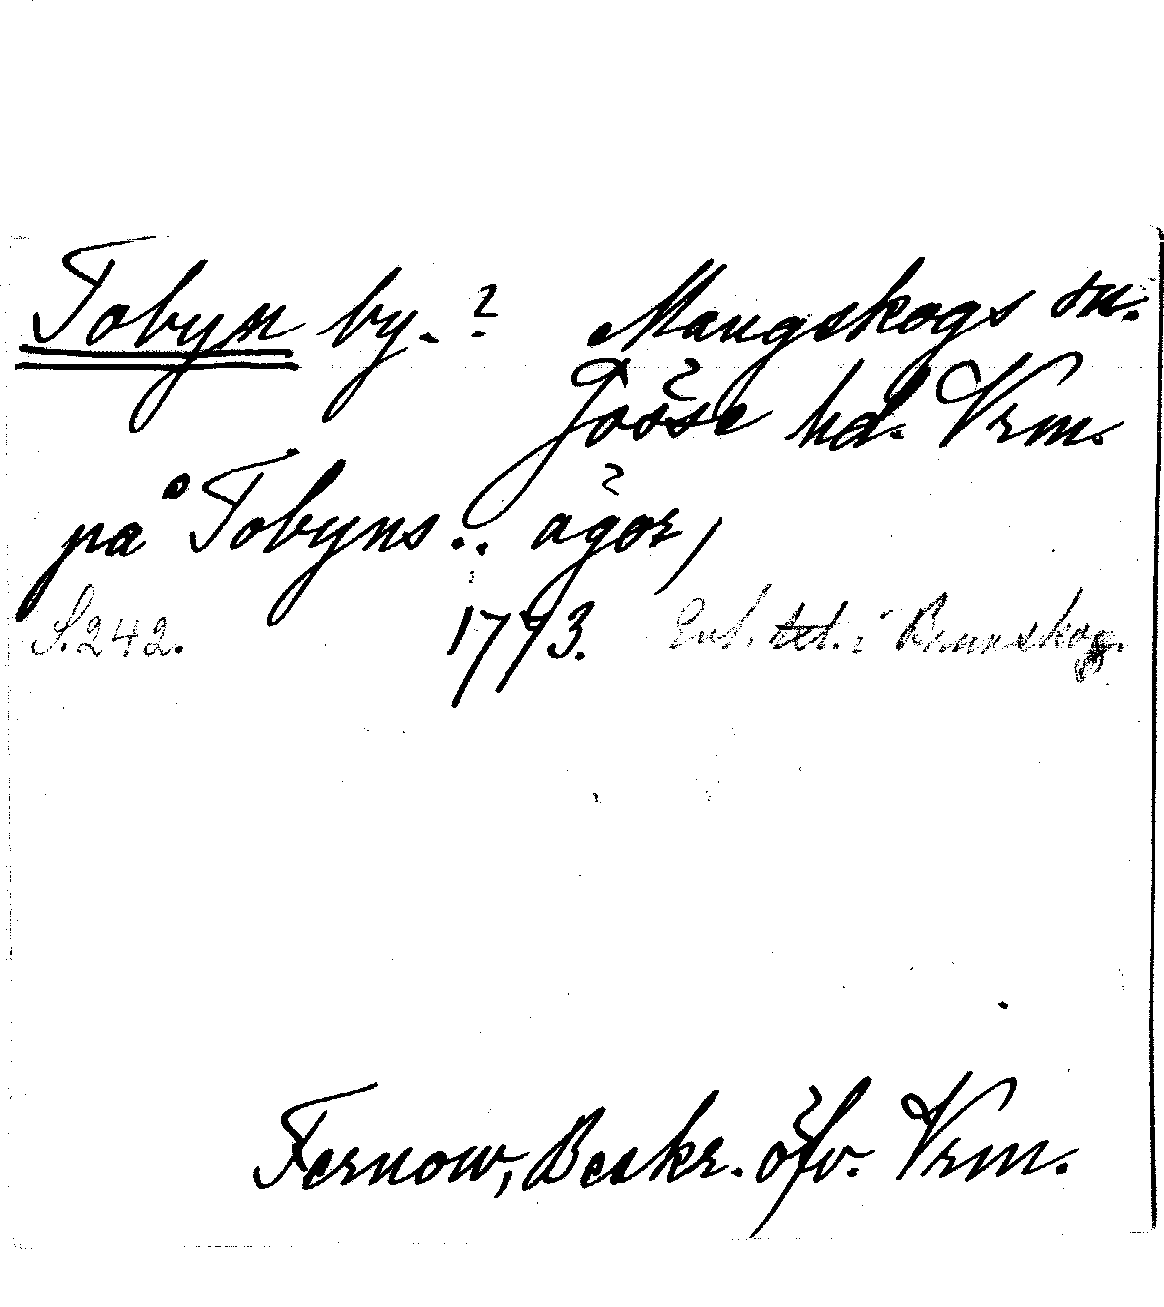 Tobyn by. ? Mangskogs sn.
Jösse hd. Vrm.
på Tobyns .. ägor,
S. 242. 1773. Enl. txt. i Brunskog.
Fernow, Beskr. öfv. Vrm.